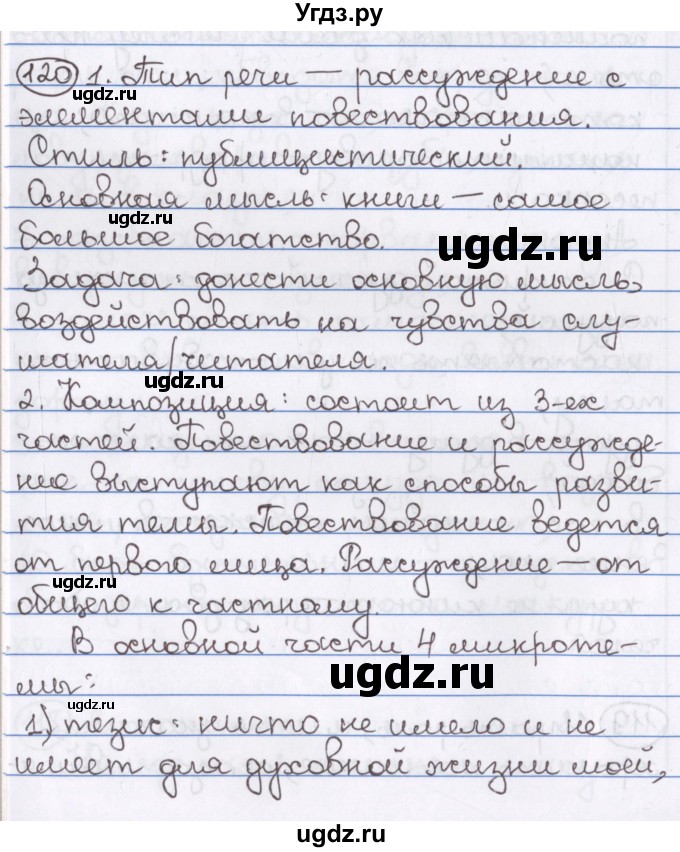 Угдз.ру
120 1. Тип речи — рассуждение с
ugdz.ru
элементами повествования.
Стиль: публицистический.
Основная мысль: книги — самое
ugdz.ru
ugdz.ru
большое богатство.
Задача: донести основную мысль,
воздействовать на чувства слу-
шателя/читателя.
ugdz.ru
2. Композиция: состоит из 3-ех
частей. Повествование и рассужде-
ние выступают как способы разви-
тия темы. Повествование ведется
от первого лица. Рассуждение — от
ugdz.ru
общего к частному.
В основной части 4 микроте-
ugdz.ru
мы:
ugdz.ru
1) тезис: ничто не имело и не
имеет для духовной жизни моей,
ugdz.ru